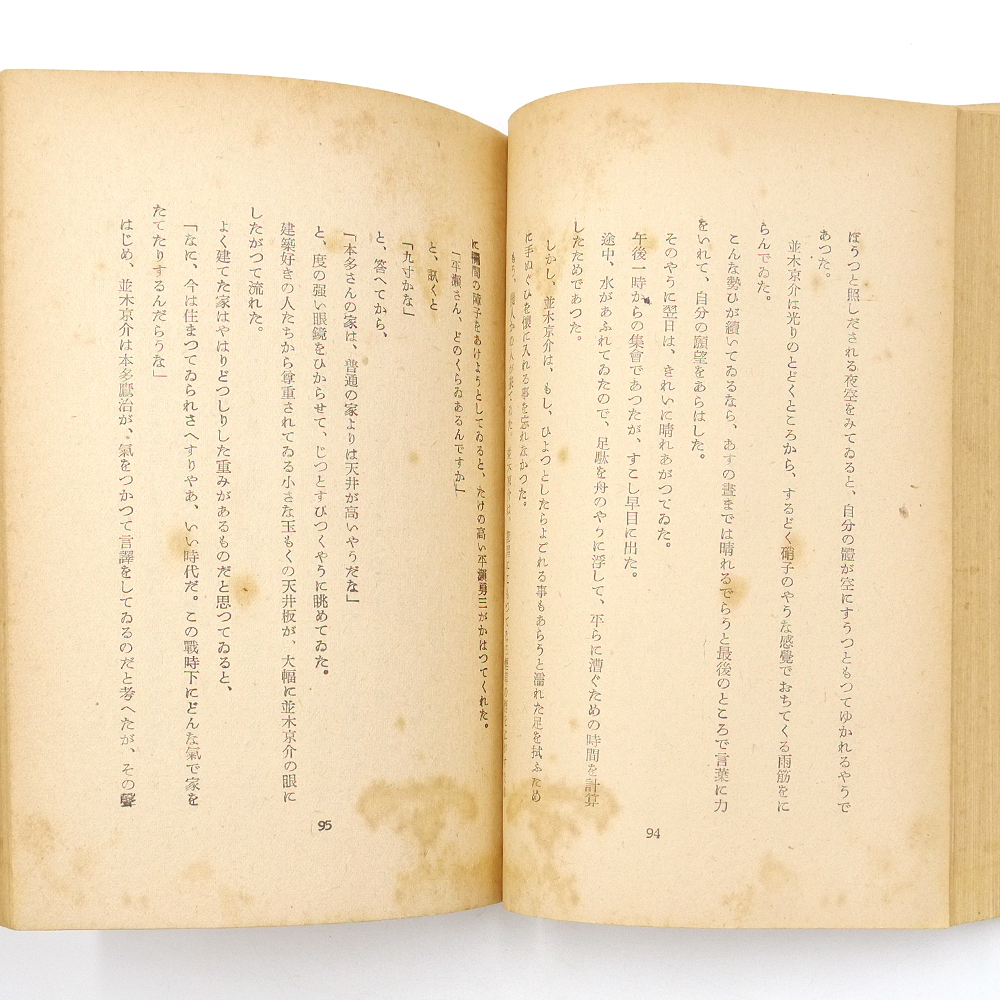 ぼうつと照しだされる夜空をみてゐると、自分の體が空にすうつともつてゆかれるやうで
あつた。
並木京介は光りのとどくところから、するどく硝子のやうな感覺でおちてくる雨筋をに
らんでゐた。
こんな勢ひが續いてゐるなら、あすの晝までは晴れるでらうと最後のところで言葉に力
をいれて、自分の願望をあらはした。
そのやうに翌日は、きれいに晴れあがつてゐた。
午後一時からの集會であつたが、すこし早目に出た。
途中、水があふれてゐたので、足駄を舟のやうに浮して、平らに漕ぐための時間を計算
したためであつた。
しかし、並木京介は、もし、ひよつとしたらよごれる事もあらうと濡れた足を拭ふため
に手ぬぐひを懷に入れる事を忘れなかつた。
94
に欄間の障子をあけようとしてゐると、たけの高い平瀬勇三がかはつてくれた。
「平瀬さん、どのくらゐあるんですか」
と、訊くと
「九寸かな」
と、答へてから、
「本多さんの家は、普通の家よりは天井が高いやうだな」
と、度の強い眼鏡をひからせて、じつとすびつくやうに眺めてゐた。
建築好きの人たちから尊重されてゐる小さな玉もくの天井板が、大幅に並木京介の眼に
したがつて流れた。
よく建てた家はやはりどつしりした重みがあるものだと思つてゐると、
「なに、今は住まつてゐられさへすりやあ、いい時代だ。この戰時下にどんな氣で家を
たてたりするんだらうな」
はじめ、並木京介は本多鷹治が、氣をつかつて言譯をしてゐるのだと考へたが、その聲
95